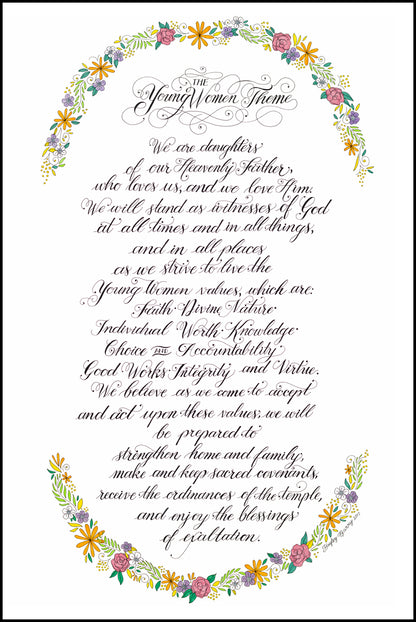 THE
Young Women Theme
We are daughters
of our Heavenly Father,
who loves us, and we love Him.
We will stand as witnesses of God
at all times and in all things,
and in all places
as we strive to live the
Young Women values, which are:
Faith· Divine Nature·
Individual Worth· Knowledge·
Choice and Accountability·
Good Works· Integrity and Virtue.
We believe as we come to accept
and act upon these values, we will
be prepared to
strengthen home and family,
make and keep sacred covenants,
receive the ordinances of the temple,
and enjoy the blessings
of exaltation.